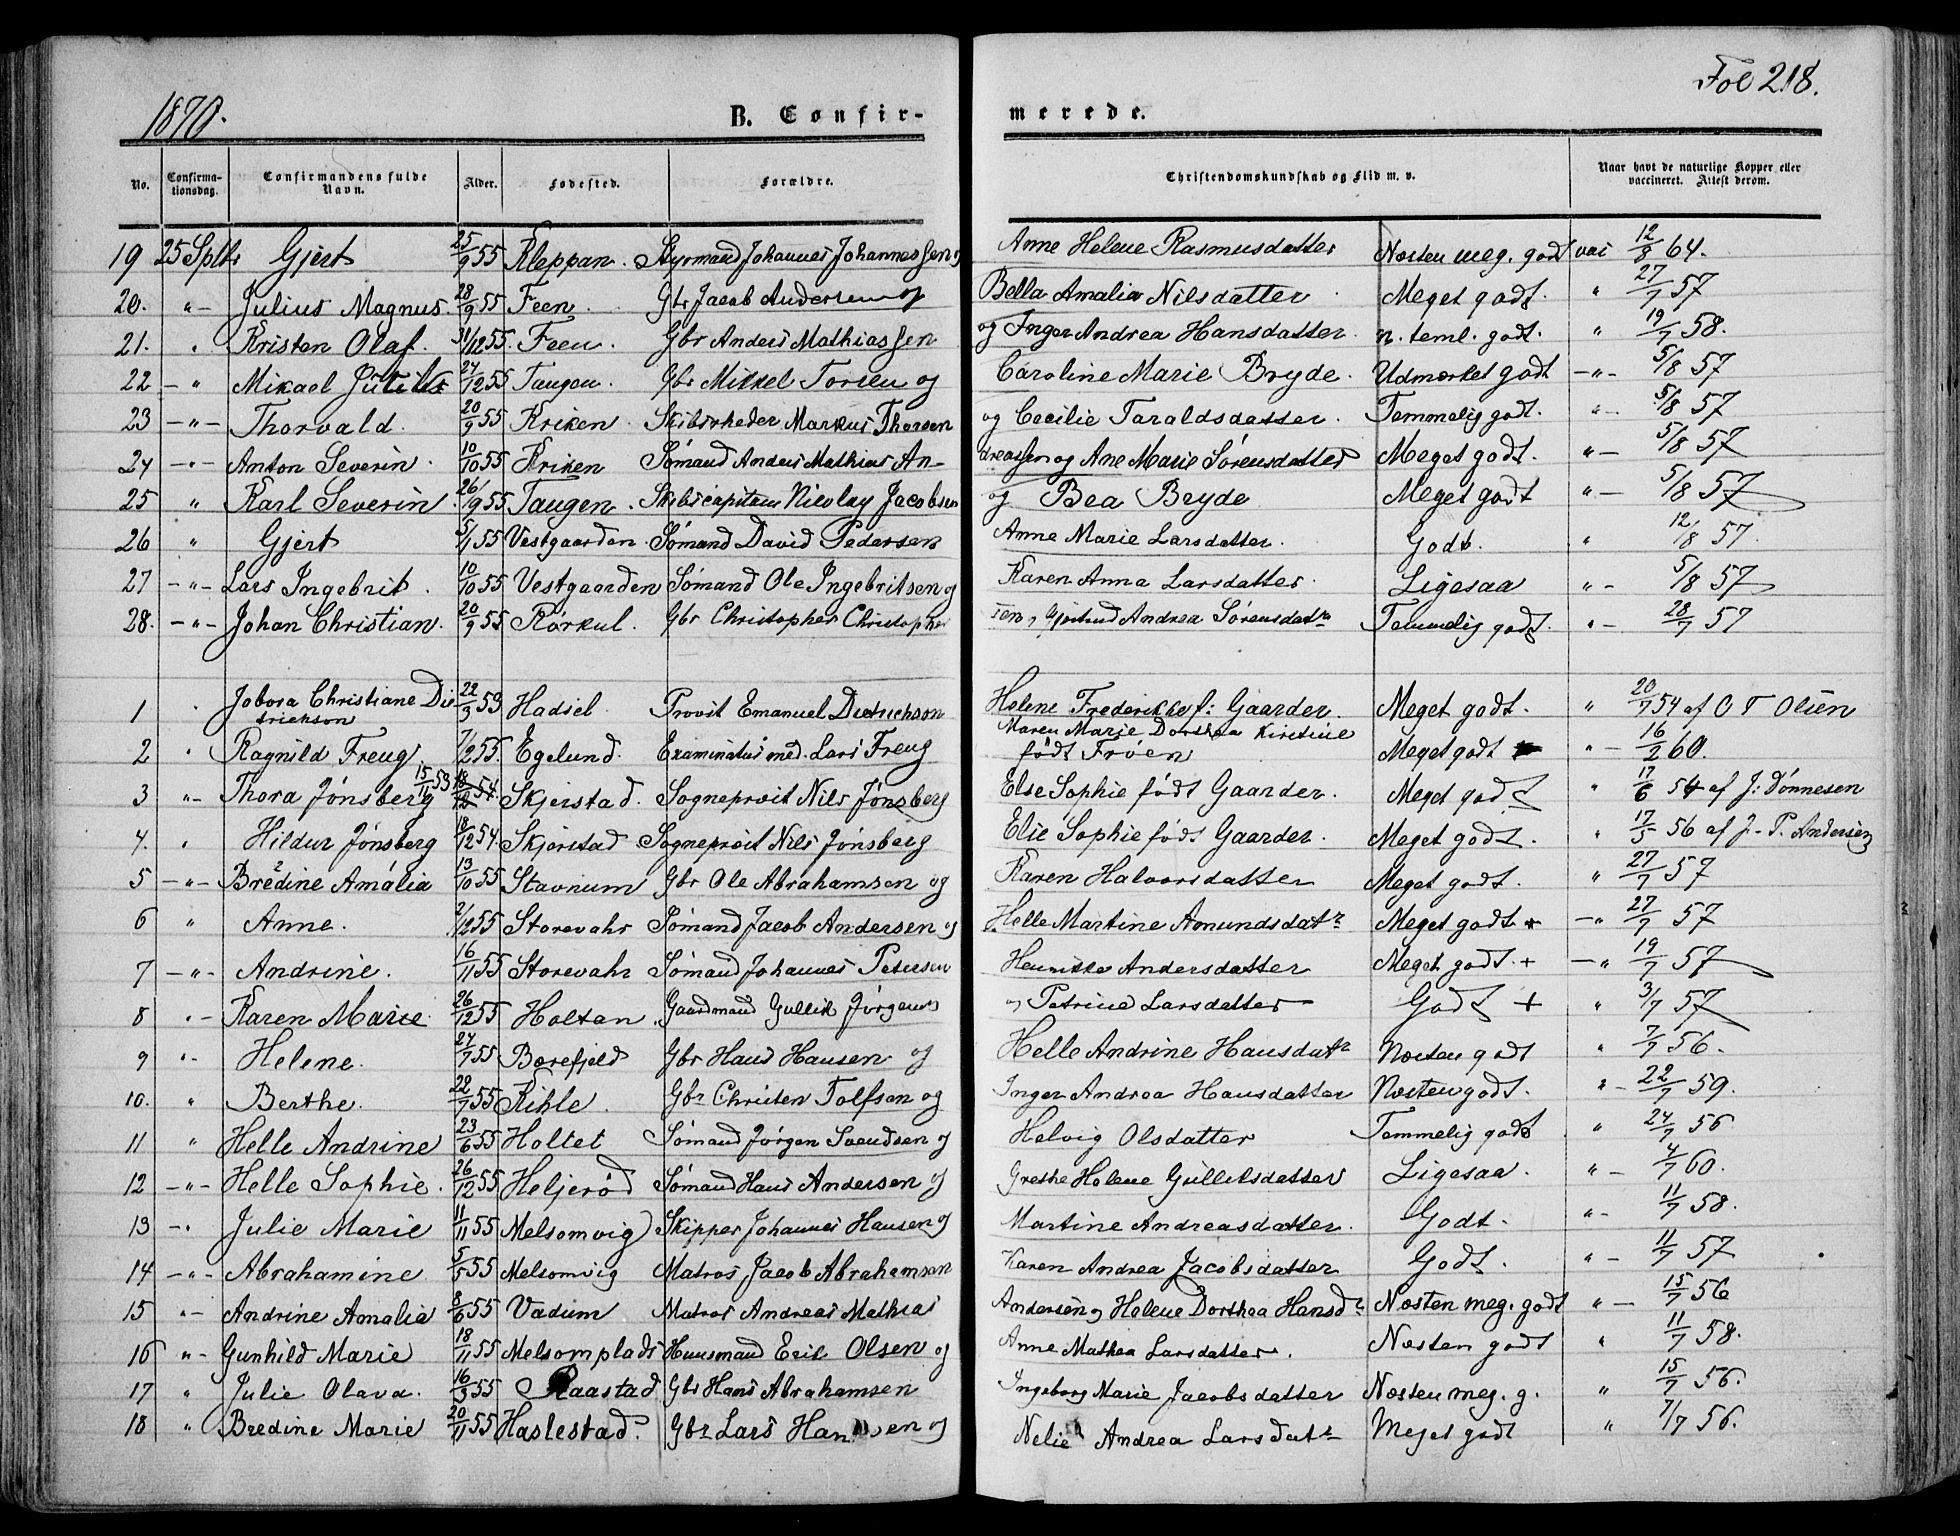 1870.
B. Confirmerede.
Fol 218.
No. Confirmationsdag. Confirmandens fulde Navn. Alder. Fødested. Forældre. Christendomskundskab og Flid m. v. Naar havt de naturlige Kopper eller vaccineret. Attest derom.
19 25 Sptbr Gjert 25/9 55 Kleppan. Styrmand Johannes Johannessen og Anne Helene Rasmusdatter Næsten meg. godt vac 12/8 64.
20. " Julius Magnus. 28/9 55 Feen. Gbr Jacob Andersen og Bella Amalia Nilsdatter Meget godt. " 27/7 57
21. " Kristen Olaf. 31/12 55. Feen. Gbr Anders Mathiassen og Inger Andrea Hansdatter. n. teml. godt. " 19/7 58.
22 " Mikael 24/12 55 Tangen. Gbr Mikkel Torsen og Caroline Marie Bryde. Udmærket godt " 5/8 57
23 " Thorvald. 20/9 55 Kriken. Skibsrheder Markus Thorsen og Cecilie Taraldsdatter. Temmelig godt. " 5/8 57
24 " Anton Severin. 10/10 55 Kriken Sømand Anders Mathias Andreassen og Ane Marie Sørensdatter Meget godt. " 5/8 57
25 " Karl Severin. 26/9 55 Tangen. Skibscapitain Nicolay Jacobsen og Bea Bryde Meget godt " 5/8 57
26 " Gjert 5/1 55 Vestgaarden. Sømand David Pedersen Anne Marie Larsdatter. Godt. " 12/8 57.
27 " Lars Ingebrit. 10/10 55 Vestgaarden Sømand Ole Ingebritsen og Karen Anna Larsdatter. Ligesaa " 5/8 57
28. " Johan Christian. 20/9 55 Rørkul. Gbr Christopher Christophersen og Gjertrud Andrea Sørensdatr Temmelig godt. " 28/7 57
1 " Jobora Christiane Dietrichson 22/3 53 Hadsel. Provst Emanuel Dietrichson Helene Frederikke f: Gaarder. Meget godt. " 20/7 54 af O T Olsen
2 " Ragnild Freng 7/2 55. Egelund. Examinatus med. Lars Freng Maren Marie Dorthea Kirstine født Frøen Meget godt " 16/2 60.
3 " Thora Jønsberg 15/11 53 Skjerstad. Sogneprest Nils Jønsberg Else Sophie født Gaarder. Meget godt " 17/6 54 af J: Dønnesen
4. " Hildur Jønsberg 18/12 54. Skjerstad Sogneprest Nils Jønsberg Else Sophie født Gaarder. Meget godt. " 17/5 56 af J. P. Andersen
5 " Bredine Amalia 13/10 55 Stavnum Gbr Ole Abrahamsen og Karen Halvorsdatter Meget godt. " 27/7 57
6 " Anne. 2/12 55 Storevahr Sømand Jacob Andersen og Helle Martine Amundsdatr Meget godt + " 27/7 57
7 " Andrine. 16/11 55 Storevahr Sømand Johannes Petersen Henrikke Andersdatter Meget godt. + " 19/7 57
8 " Karen Marie. 26/12 55 Holtan. Gaardmand Gullik Jørgens og Petrine Larsdatter Godt + " 3/7 57
9 " Helene. 24/7 55 Børefjeld Gbr Hans Hansen og Helle Andrine Hansdatr Næsten godt " 7/7 56.
10. " Berthe. 22/7 55 Kihle. Gbr Christen Tolfsen og Inger Andrea Hansdatter Næsten godt. " 22/7 59.
11 " Helle Andrine 23/6 55 Holtet Sømand Jørgen Svendsen og Helvig Olsdatter Temmelig godt " 24/7 56
12 " Helle Sophie. 26/12 55 Heljerød Sømand Hans Andersen og Grethe Helene Gulliksdatter Ligesaa. " 4/7 60.
13 " Julie Marie 11/11 55 Melsomvig Skipper Johannes Hansen og Martine Andreasdatter. Godt. " 11/7 58.
14 " Abrahamine 5/5 55 Melsomvig Matros Jacob Abrahamsen Karen Andrea Jacobsdatter Godt. " 11/7 57
15 " Andrine Amalia 8/6 55 Vadum Matros Andreas Mathias Andersen og Helene Dorthea Hansdr Næsten meg. godt " 15/7 56
16 " Gunhild Marie 18/11 55 Melsomplads Huusmand Erik Olsen og Anne Mathea Larsdatter. Næsten godt " 11/7 58.
17 " Julie Olava. 16/3 55 Raastad Gbr Hans Abrahamsen Ingeborg Marie Jacobsdatter Næsten meg. g. " 15/7 56.
18 " Bredine Marie 20/11 55 Haslestad. Gbr Lars Hansen og Nelie Andrea Larsdatr Meget godt " 7/7 56.